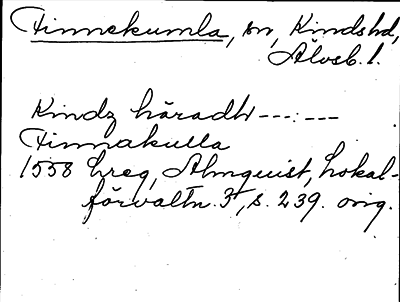 Finnekumla, sn, Kindshd,
Älvsb. l.
Kindz häradh ---:---
Finnakulla
1558 Lreg, Almquist, Lokal-
förvaltn. 3, s. 239. orig.